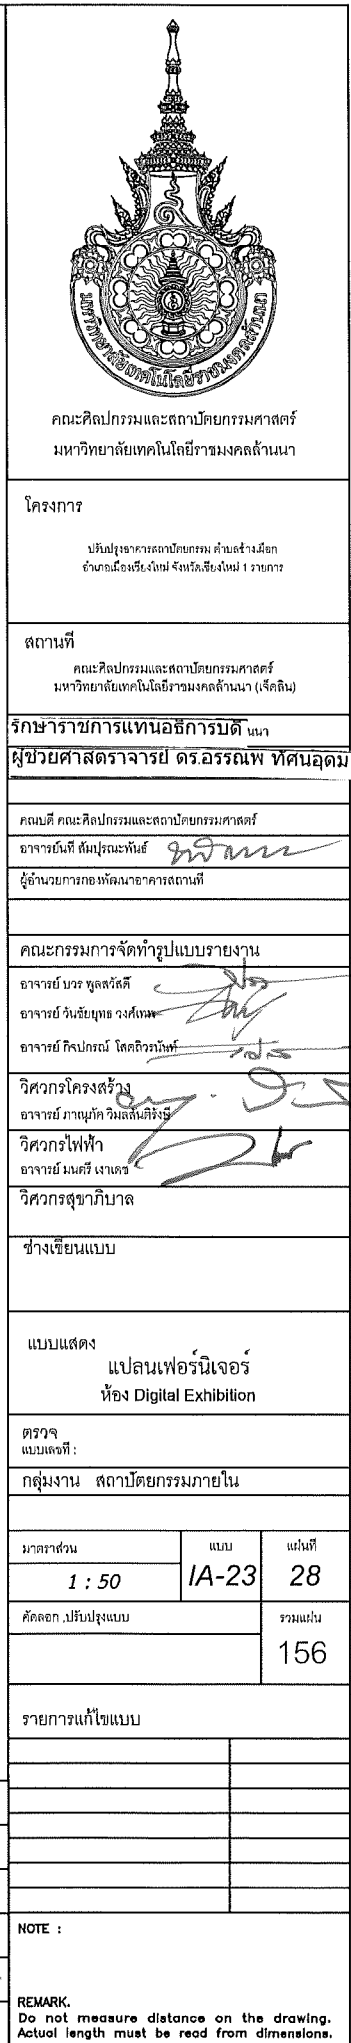 มหาวิทยาลัยเทคโนโลยีราชมงคลล้านนา
คณะศิลปกรรมและสถาปัตยกรรมศาสตร์
มหาวิทยาลัยเทคโนโลยีราชมงคลล้านนา
โครงการ
ปรับปรุงอาคารสถาปัตยกรรม ตำบลช้างเผือก
อำเภอเมืองเชียงใหม่ จังหวัดเชียงใหม่ 1 รายการ
สถานที่
คณะศิลปกรรมและสถาปัตยกรรมศาสตร์
มหาวิทยาลัยเทคโนโลยีราชมงคลล้านนา (เจ็ดลิน)
รักษาราชการแทนอธิการบดี นนา
ผู้ช่วยศาสตราจารย์ ดร.อรรณพ ทัศนอุดม
คณบดี คณะศิลปกรรมและสถาปัตยกรรมศาสตร์
อาจารย์นที สัมปุรณะพันธ์
ผู้อำนวยการกองพัฒนาอาคารสถานที่
คณะกรรมการจัดทำรูปแบบรายงาน
อาจารย์ บวร พูลสวัสดิ์
อาจารย์ วันชัยยุทธ วงศ์เทพ
อาจารย์ กิจปกรณ์ โสตถิวรนันท์
วิศวกรโครงสร้าง
อาจารย์ ภาณุภัค
วิศวกรไฟฟ้า
อาจารย์ มนตรี เงาเดช
วิศวกรสุขาภิบาล
ช่างเขียนแบบ
แบบแสดง
แปลนเฟอร์นิเจอร์
ห้อง Digital Exhibition
ตรวจ
แบบเลขที่ :
กลุ่มงาน สถาปัตยกรรมภายใน
มาตราส่วน แบบ แผ่นที่
1 : 50 IA-23 28
คัดลอก ,ปรับปรุงแบบ รวมแผ่น
156
รายการแก้ไขแบบ
NOTE :
REMARK.
Do not measure distance on the drawing.
Actual length must be read from dimensions.